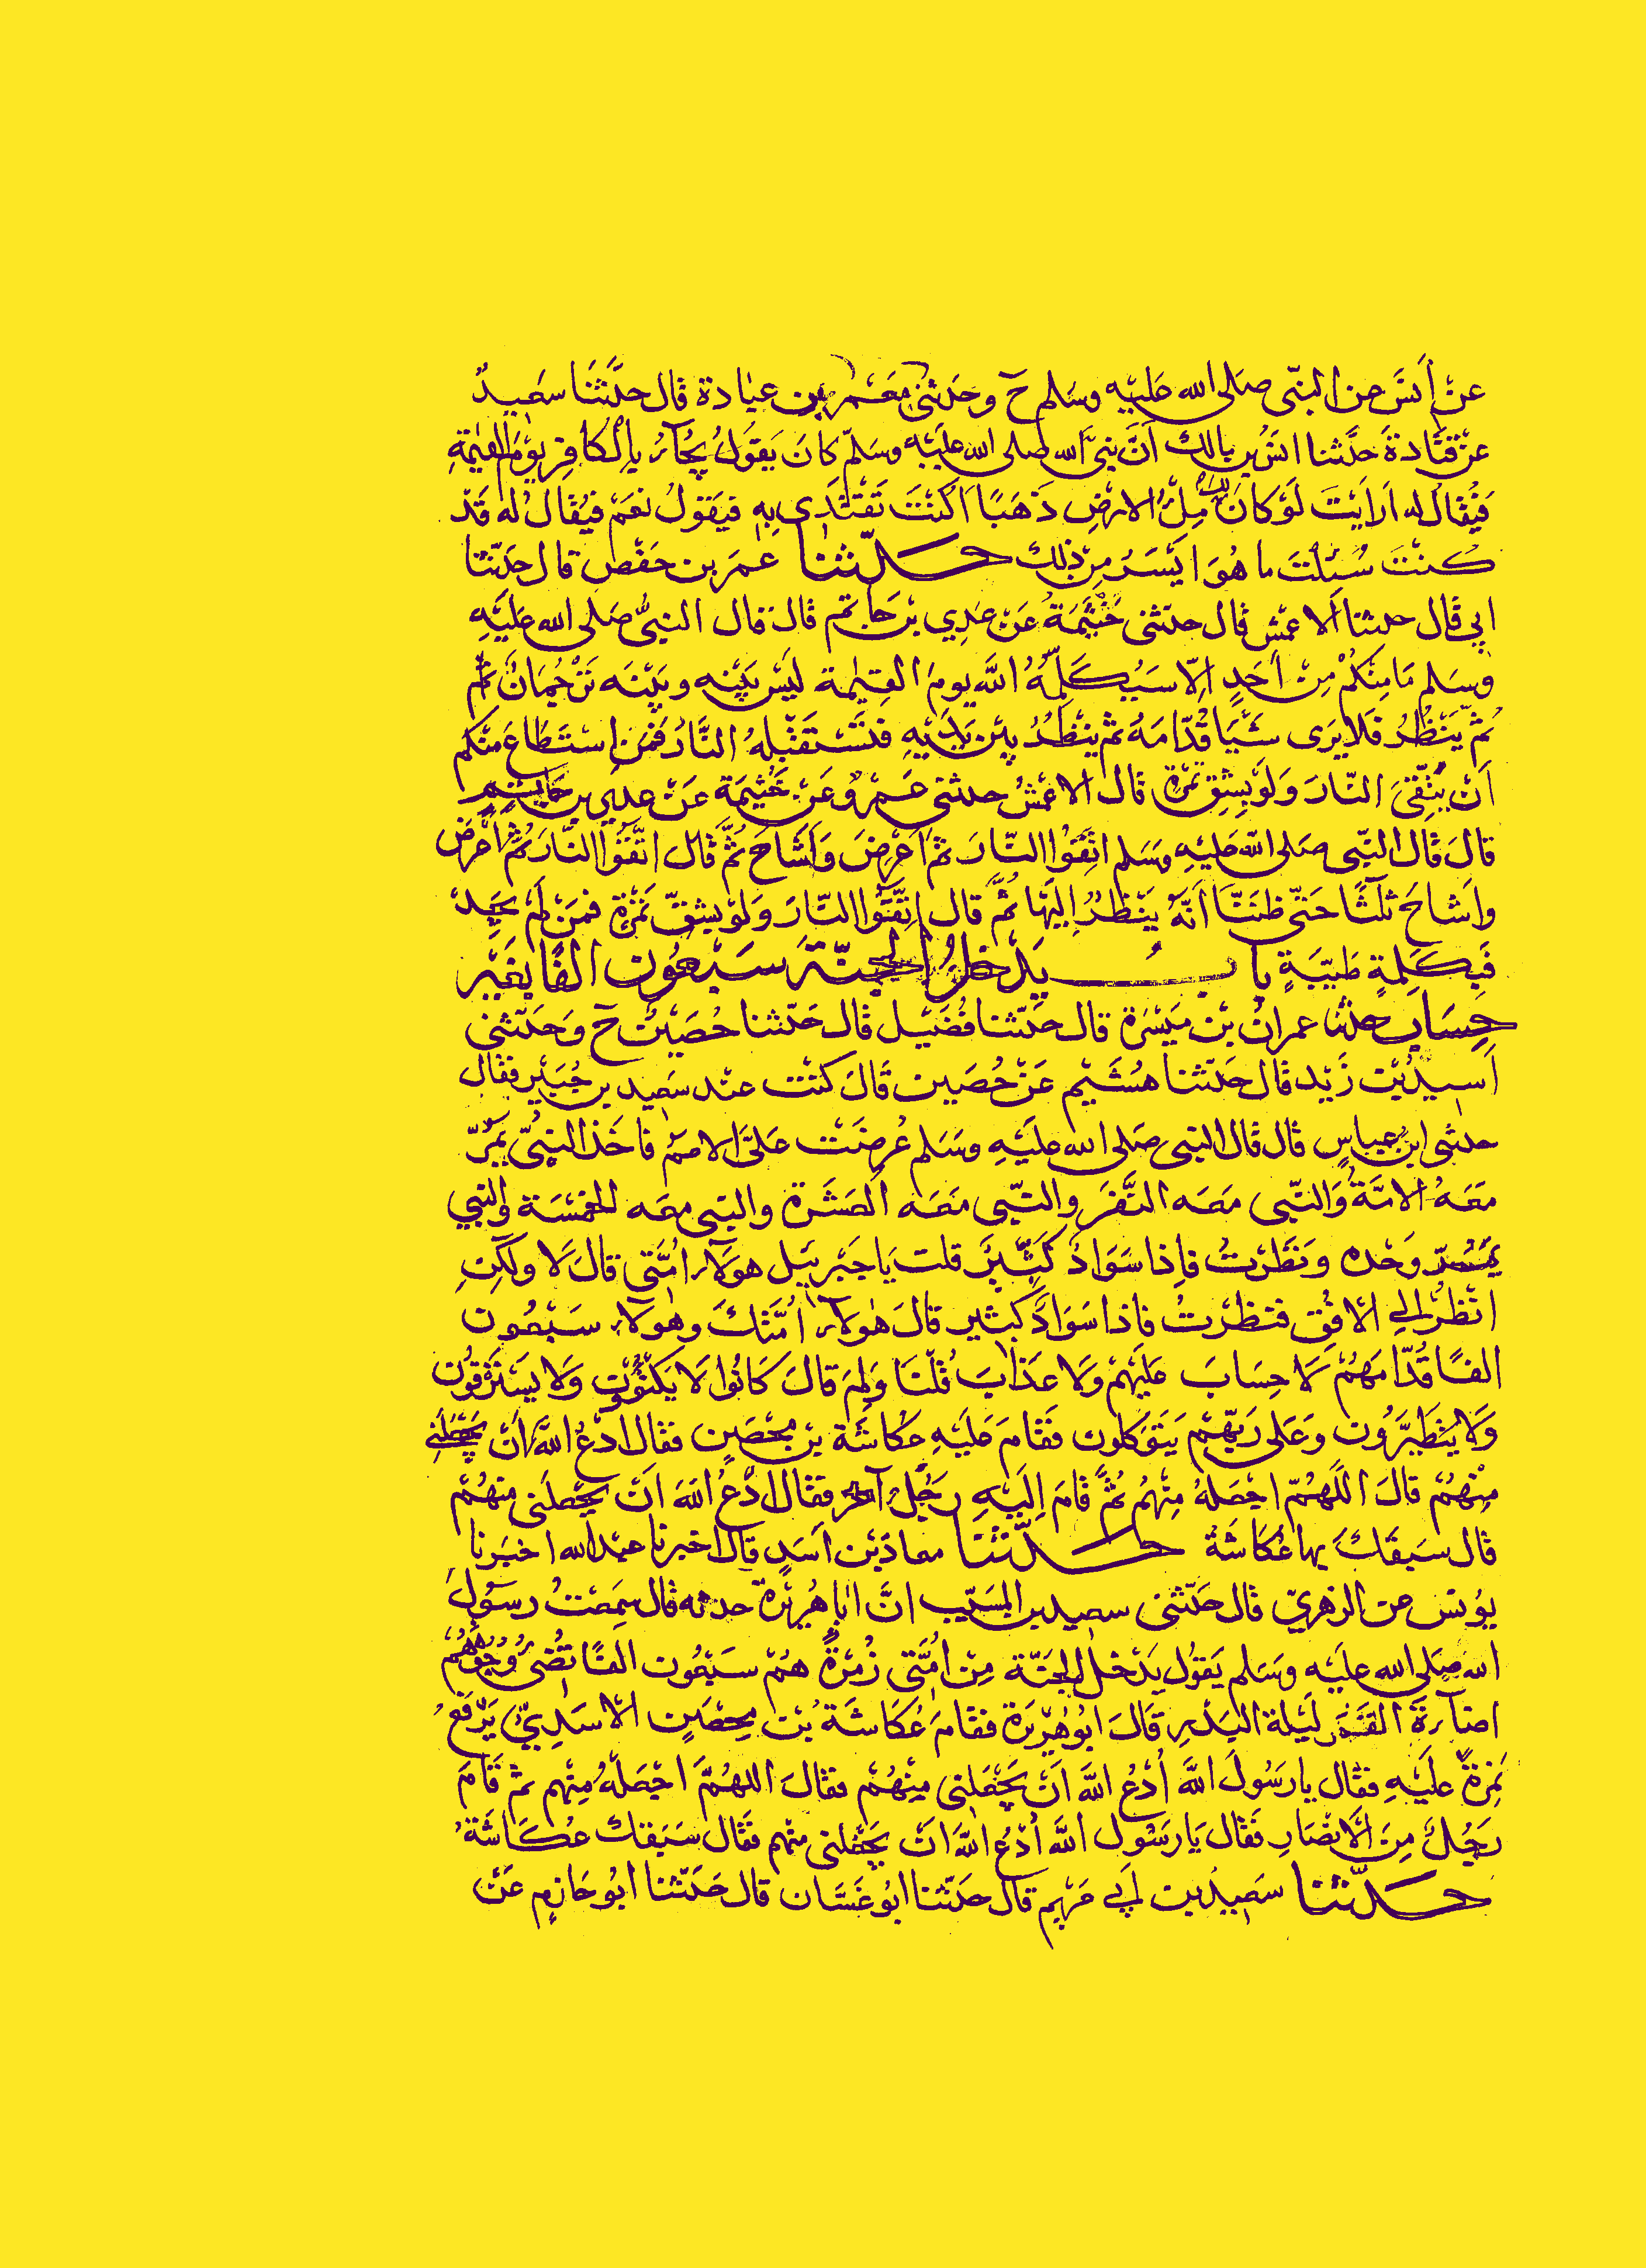 عَنْ أَنَسَ عن النبّى صلى الله عليه وسلم حَ وحدثنى معمر بن عبادة قال حدَّثنا سعيدٌ
عن قتادة حدَّثنا انسُ بن مالك اَنَّ نبىَّ الله صلى الله عليه وسلّم كانَ يَقولُ يُجآءُ بالكافر يومَ القيٰمةِ
فَيُقالُ له اَرَايتَ لَوْ كانَ لك مِلْءُ الارضِ ذهَبًا اكُنْتَ تَفْتَدى بِهِ فيَقولُ نعَم فيُقالُ له قَدْ
كنتَ سُئلتَ ما هُوَ اَيْسَرُ مِن ذلك حدّثنا عمَر بن حَفْص قال حدّثنا
ابى قال حدثنا الاعمش قال حدّثنى خَيْثَمَةُ عَن عَدِي بن حاتم قال قال النبىُّ صَلى الله عَليْهِ
وسلم مَا مِنكُمْ مِنْ اَحَدٍ اِلّا سَيُكَلِّمُهُ اللهُ يومَ القيٰمة ليسَ بَيْنه وبَيْنَه تَرْجُمَانٌ ثم
ثم يَنظُرُ فَلا يرَى شَيْئًا قدّامَهُ ثم ينظُرُ بين يَدَيْهِ فتَسْتَقْبِلهُ النَّارُ فَمَنِ استَطاعَ منكم
اَن يتّقىَ النّارَ وَلَوْ بِشِقِ تمرة قال الاعمشُ حدثنى عَمرٌو عَن خَيْثَمَة عَنْ عدي بن حاتم
قال قال النبّى صَلى الله عليهِ وسَلم اتّقُوا النّارَ ثم اَعْرضَ وَاَشَاحَ ثمَّ قال اتَّقُوا النَّارَ ثم اَعْرَضَ
واَشاحَ ثلثًا حَتّى ظننّا اَنّهُ يَنظُرُ اِليهَا ثمَّ قال اتَّقُوا النّارَ وَلَوْ بشقِّ تمَرةٍ فمَن لم يجدْ
فَبِكَلِمةٍ طَيّبَةٍ بابُ يَدْخلُ الجنّةَ سَبْعُون الفًا بغَيْرِ
حِسَابٍ حدثنا عمرانُ بن مَيْسَرة قال حَدّثنا فُضَيْل قال حَدّثنا حُصَيْنٌ حَ وَحَدّثنى
اَسيدُ بن زَيْد قال حَدّثنا هُشَيْم عَنْ حُصَين قالَ كنْتُ عنْد سَعِيد بن جُبَيْرٍ فقال
حدثنى ابن عباس قال قال النبى صَلى الله عليْهِ وسَلم عُرِضَت عَلىَّ الامَمُ فاَخَذ النّبىُّ يمُرُّ
معَهُ الامّةُ وَالنّبى معَه النَّفَرَ والنّبى مَعَه الْعَشَرة والنبى معَه الخمْسَة والنبي
يَمُرّ وَحْده ونَظَرتُ فاِذا سَوَادٌ كَثيْرٌ قلت يَا جَبْرئيل هولآءِ اُمّتى قالَ لَا ولكنِ
انظُر الى الافق فنظرتُ فاذا سَوَادٌ كَثير قالَ هولآءِ اُمّتكَ وهولآءِ سَبْعُون
الفًا قُدّامَهُمْ لَا حِسَابَ عَلَيْهِمْ وَلا عَذَابَ قُلْتُ وَلِمَ قالَ كَانُوا لَا يَكتوُونَ وَلا يَسْتَرْقُون
وَلا يَتَطَيَّرُونَ وَعَلى رَبِّهِمْ يَتَوَكلون فَقَامَ اِليْهِ عكاشَة بن محْصَنٍ فقال ادْعُ اللهَ اَنْ يَجْعَلَنى
مِنْهُمْ قالَ اللهُمّ اجْعَلهُ مِنْهُم ثمَّ قامَ اِلَيْهِ رَجُلٌ آخر فقال ادْعُ اللهَ اَنْ يَجْعَلَنى منهُم
قال سَبَقَكَ بها عُكاشَةُ حدّثنا معاذ بن اَسَدٍ قال اخبرنا عبد الله اخبَرنا
يوُنس عن الزهرىّ قال حَدّثنى سعيد بن المسَيّب انَّ اَبا هُرَيْرَةَ حدثه قال سَمِعْتُ رسُولَ
الله صَلى الله عليْهِ وسَلم يَقوُل يَدْخل الجنّة مِنْ اُمَّتى زُمْرةٌ هُمْ سَبْعُون الفًا تُضىُ وُجُوْهُهُم
اضآءةَ القَمَر لَيلة البَدْر قالَ ابو هُريرَة فقامَ عُكاشَة بن محصَنٍ الاسَدِىُّ يَرْفعُ
نمِرَةً عليْهِ فقال يا رسُولَ اللهَ اُدْعُ اللهَ اَنْ يَجْعَلَنى مِنْهُمْ فقالَ اللهُمَّ اجْعَلهُ مِنْهم ثم قامَ
رَجُلٌ مِنَ الْانصَارِ فقال يَا رسُول اللهَ اُدْعُ اللهَ انْ يَجْعَلنى منهم فقال سَبَقك عُكَّاشَةُ
حدّثنا سعيدُ بن اَبى مَريم قال حَدّثنا ابُو غَسّان قال حَدّثنا ابُو حَازمٍ عَنْ